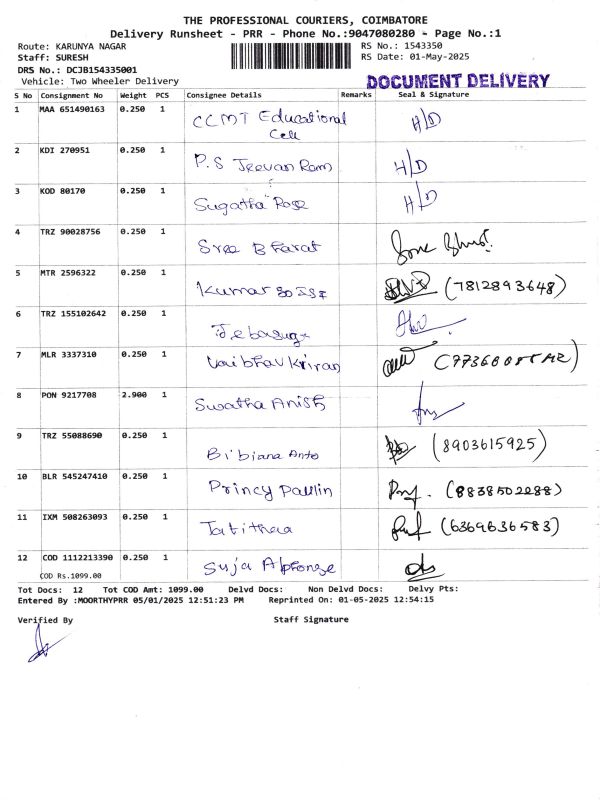 THE PROFESSIONAL COURIERS, COIMBATORE
Delivery Runsheet - PRR - Phone No.:9047080280 - Page No.:1
Route: KARUNYA NAGAR RS No.: 1543350
Staff: SURESH RS Date: 01-May-2025
DRS No.: DCJB154335001
Vehicle: Two Wheeler Delivery DOCUMENT DELIVERY
S No Consignment No Weight PCS Consignee Details Remarks Seal & Signature
1 MAA 651490163 0.250 1 CCMT Educational H/D
Cell
2 KDI 270951 0.250 1 P.S Jeevan Ram H/D
3 KOD 80170 0.250 1 Sugatha Rose H/D
4 TRZ 90028756 0.250 1 Sree Bharat
5 MTR 2596322 0.250 1 Kumar (7812893648)
6 TRZ 155102642 0.250 1
7 MLR 3337310 0.250 1 Vaibhav
8 PON 9217708 2.900 1 Swatha Anish
9 TRZ 55088690 0.250 1 Bibiana Anto (8903615925)
10 BLR 545247410 0.250 1 Princy Paulin (8838502288)
11 IXM 508263093 0.250 1 (6369636583)
12 COD 1112213390 0.250 1 Suja Alphonse
COD Rs.1099.00
Tot Docs: 12 Tot COD Amt: 1099.00 Delvd Docs: Non Delvd Docs: Delvy Pts:
Entered By :MOORTHYPRR 05/01/2025 12:51:23 PM Reprinted On: 01-05-2025 12:54:15
Verified By Staff Signature